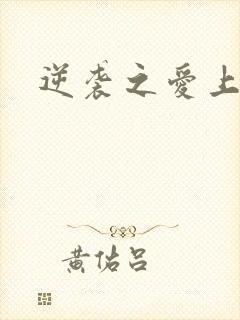 逆袭之愛上
黄佑吕